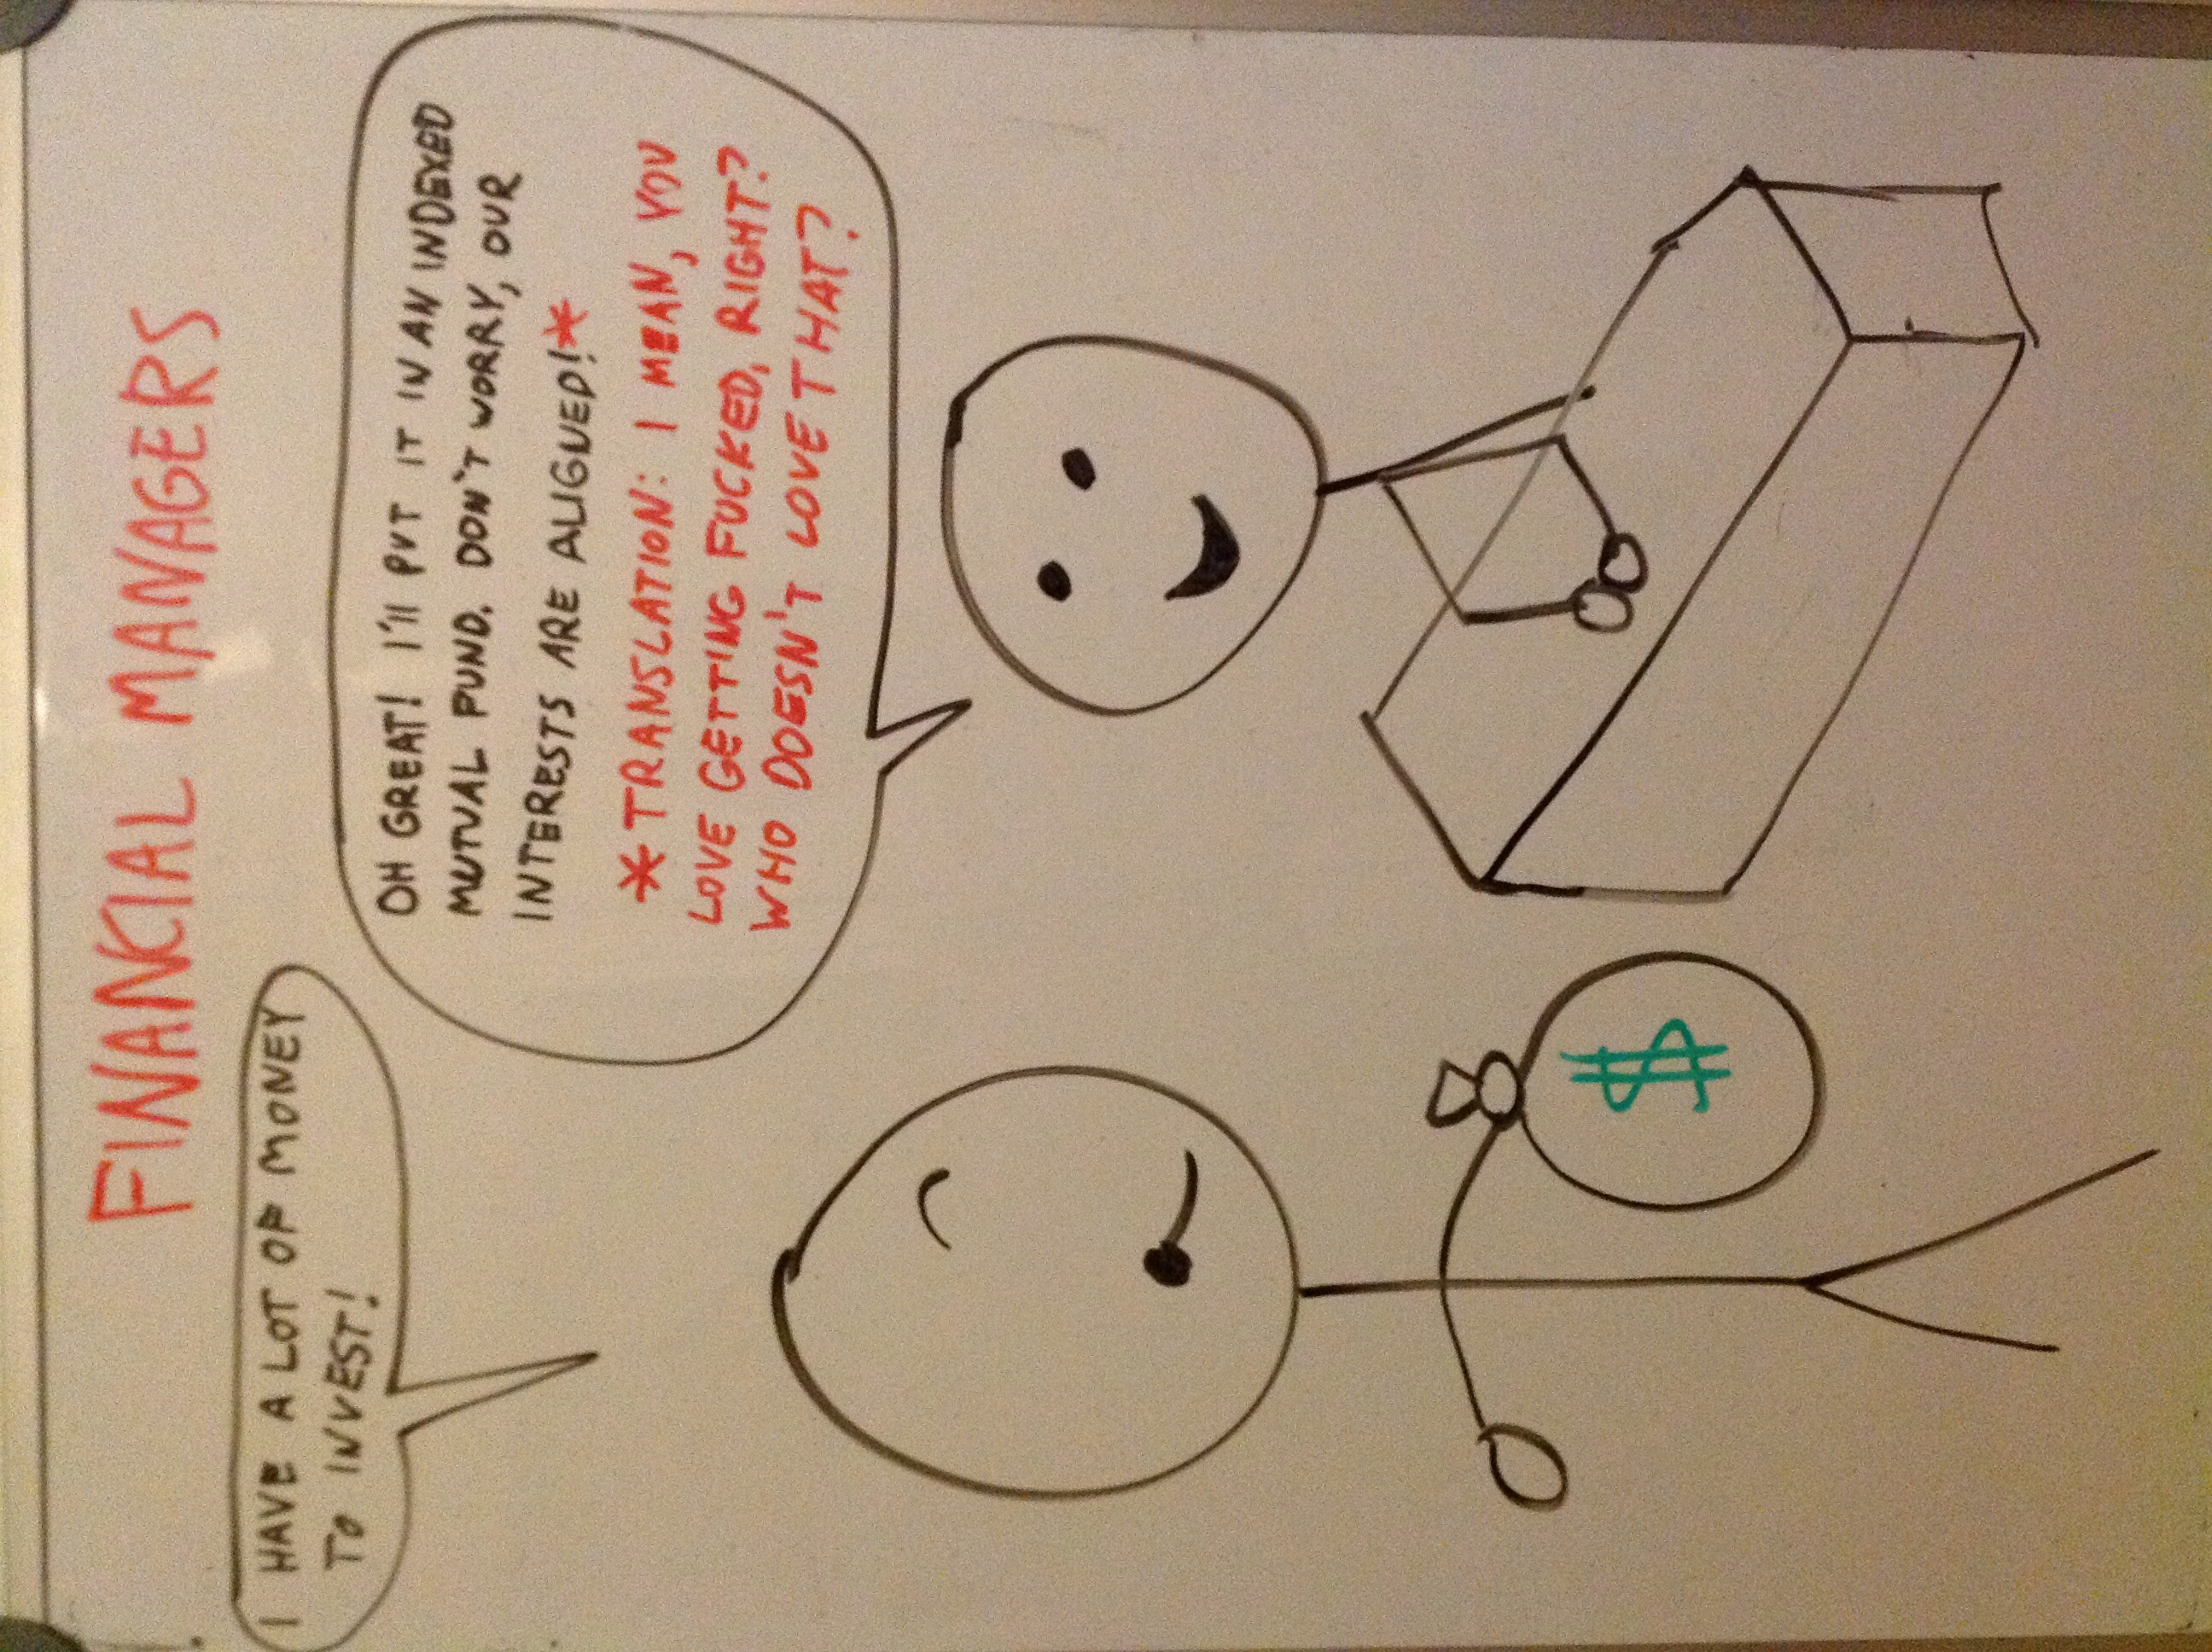 FINANCIAL MANAGERS
I HAVE A LOT OF MONEY
TO INVEST!
OH GREAT! I'll PUT IT IN AN INDEXED
MUTUAL FUND. DON'T WORRY, OUR
INTERESTS ARE ALIGNED!*
* TRANSLATION: I MEAN, YOU
LOVE GETTING FUCKED, RIGHT?
WHO DOESN'T LOVE THAT?
$